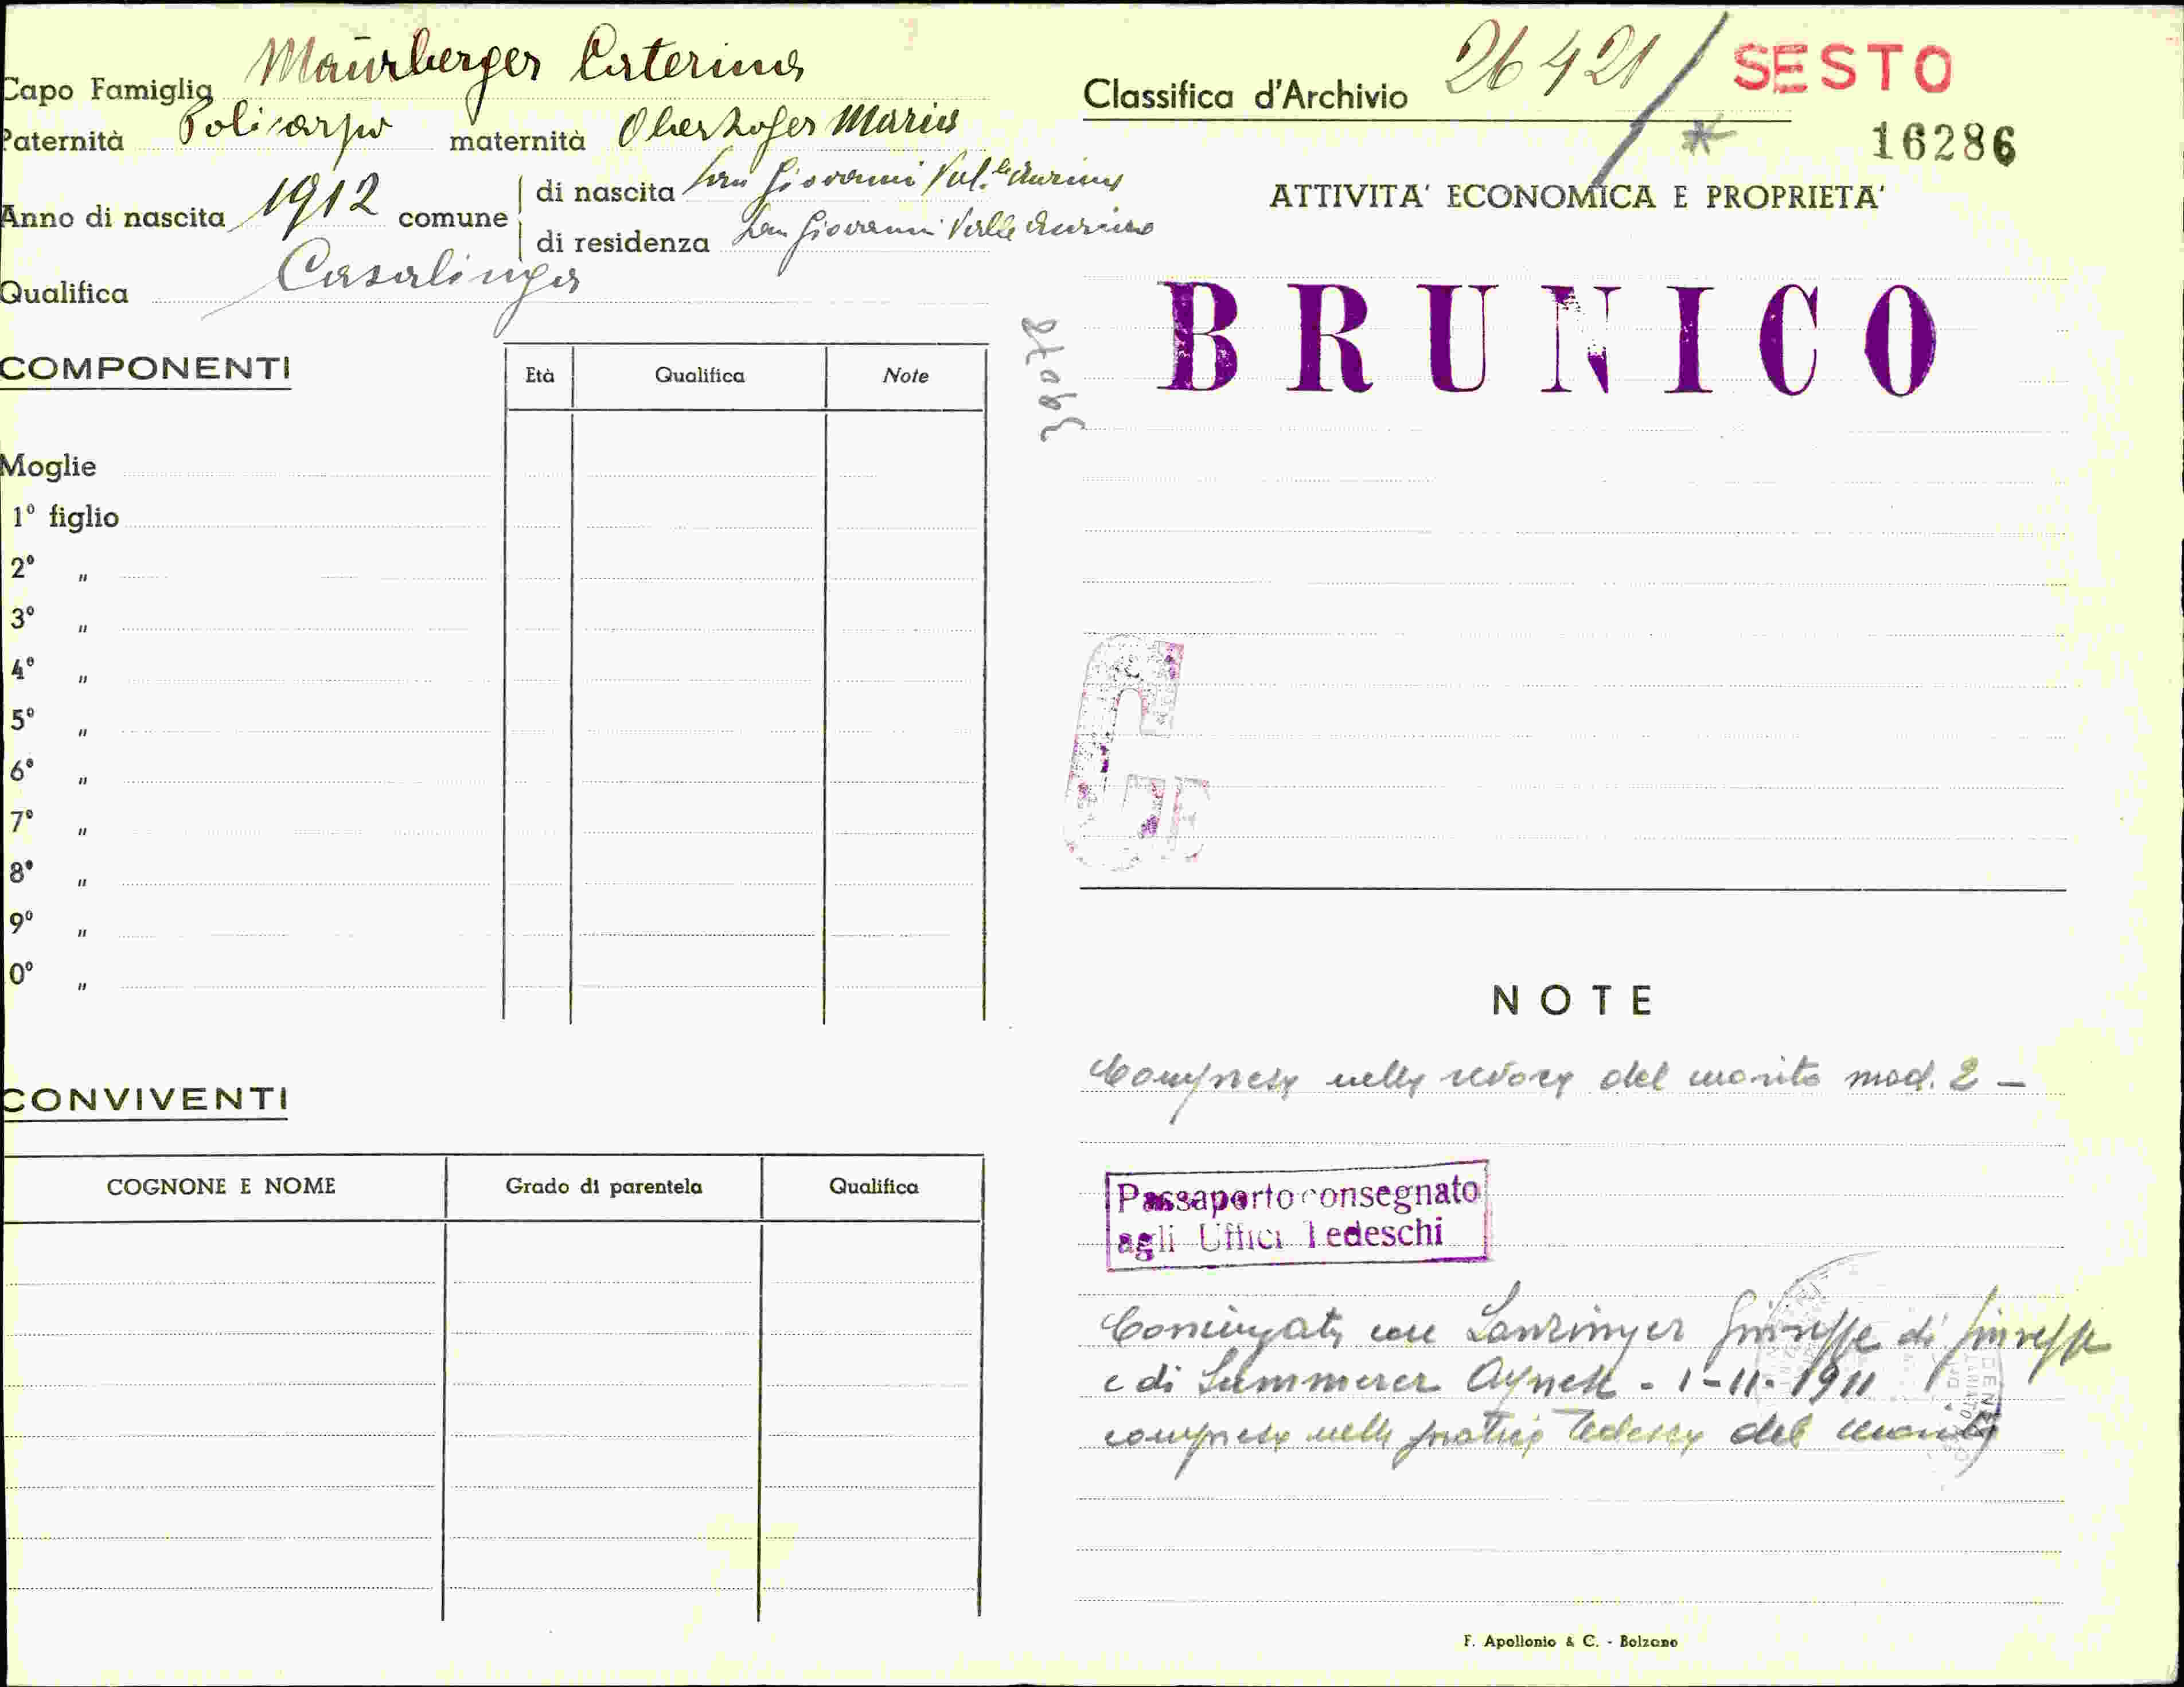 Capo Famiglia Maurberger Caterina
Paternità Policarpo maternità Oberhofer Maria
Anno di nascita 1912 comune
di nascita San Giovanni Val.le Aurina
di residenza San Giovanni Valle Aurina
Qualifica Casalinga
COMPONENTI
Età Qualifica Note
Moglie
1º figlio
2º "
3º "
4º "
5º "
6º "
7º "
8º "
9º "
0º "
CONVIVENTI
COGNONE E NOME Grado di parentela Qualifica
Classifica d'Archivio 26421/ SESTO
* 16286
ATTIVITA' ECONOMICA E PROPRIETA'
BRUNICO
39078
G
NOTE
Compresa nella revoca del marito mod. 2 -
Passaporto consegnato
agli Uffici Tedeschi
Coniugata con Lanzinger Giuseppe di Giuseppe
e di Summerer Agnese - 1-11-1911
compresa nella pratica Tedesca del marito
F. Apollonio & C. - Bolzano